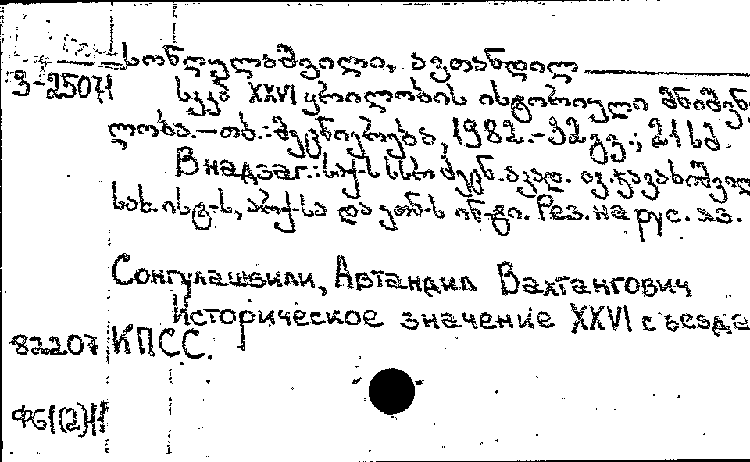 სონღულაშვილი, ავთანდილ
3-25071
სკკპ XXVI ყრილობის ისტორიული მნიშვნე
ლობა.–თბ.: მეცნიერება, 1982.–32 გვ.; 21 სმ.
В надзаг.: საქ-ს სსრ მეცნ. აკად. ივ. ჯავახიშვილ
სახ. ისტ-ს, არქ-სა და ეთნ-ს ინ-ტი. Рез. на рус. яз.
Сонгулашвили, Автандил Вахтангович
Историческое значение XXVI съезда
82207 КПСС.
Ф61(2)11